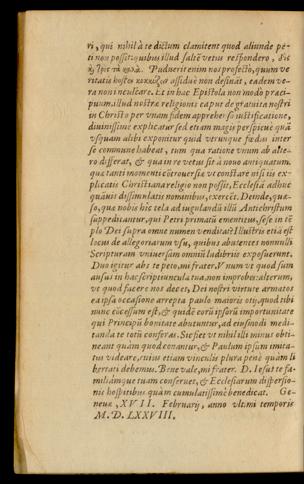 ri, qui nihil à te dictum clamitent quod aliunde pe-
ti non possit: quibus illud saltē vetus respondero, δὶς
ϗ τρὶς τὰ καλά. Puduerit enim nos profectò, quum ve
ritatis hostes κοκκύζειν assiduè non desinãt, eadem ve-
ra non inculcare. Et in hac Epistola non modò præci-
puum illud nostræ religionis caput de gratuita nostri
in Christo per vnam fidem apprehenso iustificatione,
diuinissimè explicatur sed etiam magis perspicuè quã
vsquam alibi exponitur quid vtrunque fœdus inter
se commune habeat, tum qua ratione vnum ab alte-
ro differat, & qua in re vetus sit à nouo antiquatum.
quæ tanti momenti cõtrouersiæ vt constare nisi iis ex-
plicatis Christiana religio non possit, Ecclesiã adhuc
quãuis dissimulatis nominibus, exercēt. Deinde, quæ-
so, quæ nobis hîc tela ad iugulandũ illũ Antichristum
suppeditantur, qui Petri primatũ ementitus, sese in tē
plo Dei supra omne numen vendicat? Illustris etiã est
locus de allegoriarum vsu, quibus abutentes nonnulli
Scripturam vniuersam omniũ ludibriis exposuerunt.
Duo igitur abs te peto, mi frater. Vnum vt quod sum
ausus in hac scriptiuncula tua, non improbes: alterum,
vt quod facere nos decet, Dei nostri virtute armatos
ea ipsa occasione arrepta paulo maioris otij, quod tibi
nunc cõcessum est, & quidē eorũ ipsorũ importunitate
qui Principũ bonitate abutuntur, ad eiusmodi medi-
tanda te totũ conferas. Sic fiet vt nihil illi minus obti-
neant quàm quod conantur, & Paulum ipsum imita-
tus videare, cuius etiam vinculis plura penè quàm li
bertati debemus. Bene vale, mi frater. D. Iesus te fa-
miliámque tuam conseruet, & Ecclesiarum dispersio-
nis hospitibus quàm cumulatissimè benedicat. Ge-
neuæ, XVII. Februarij, anno vlt.mi temporis
M. D. LXXVIII.